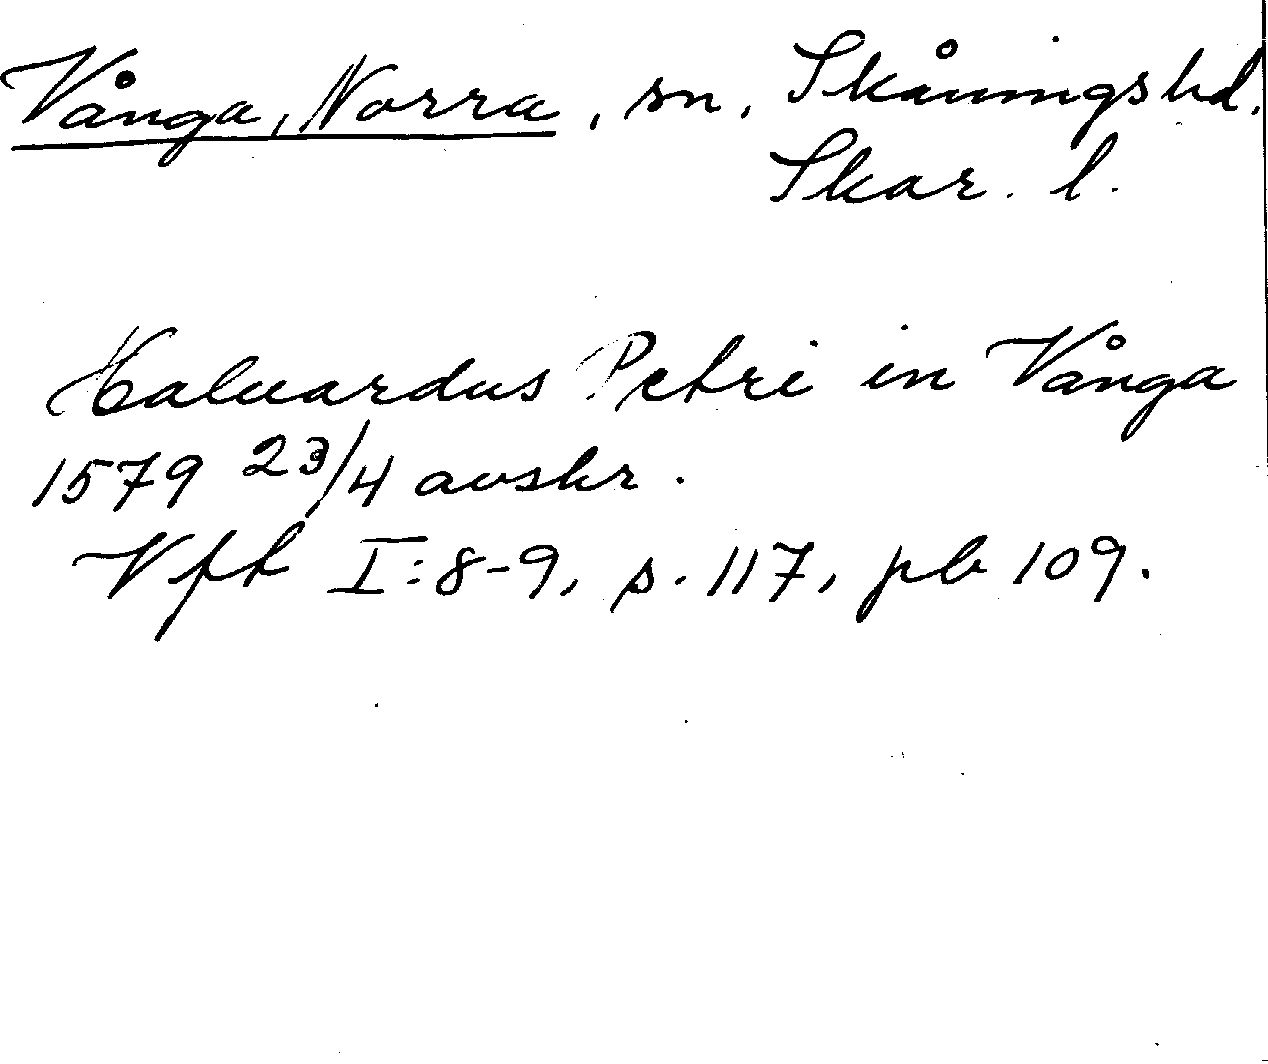 Vånga, Norra, sn, Skånings hd,
Skar. l.
Haluardus Petri in Vånga
1579 23/4 avskr.
Vft I:8-9, s. 117, pb 109.